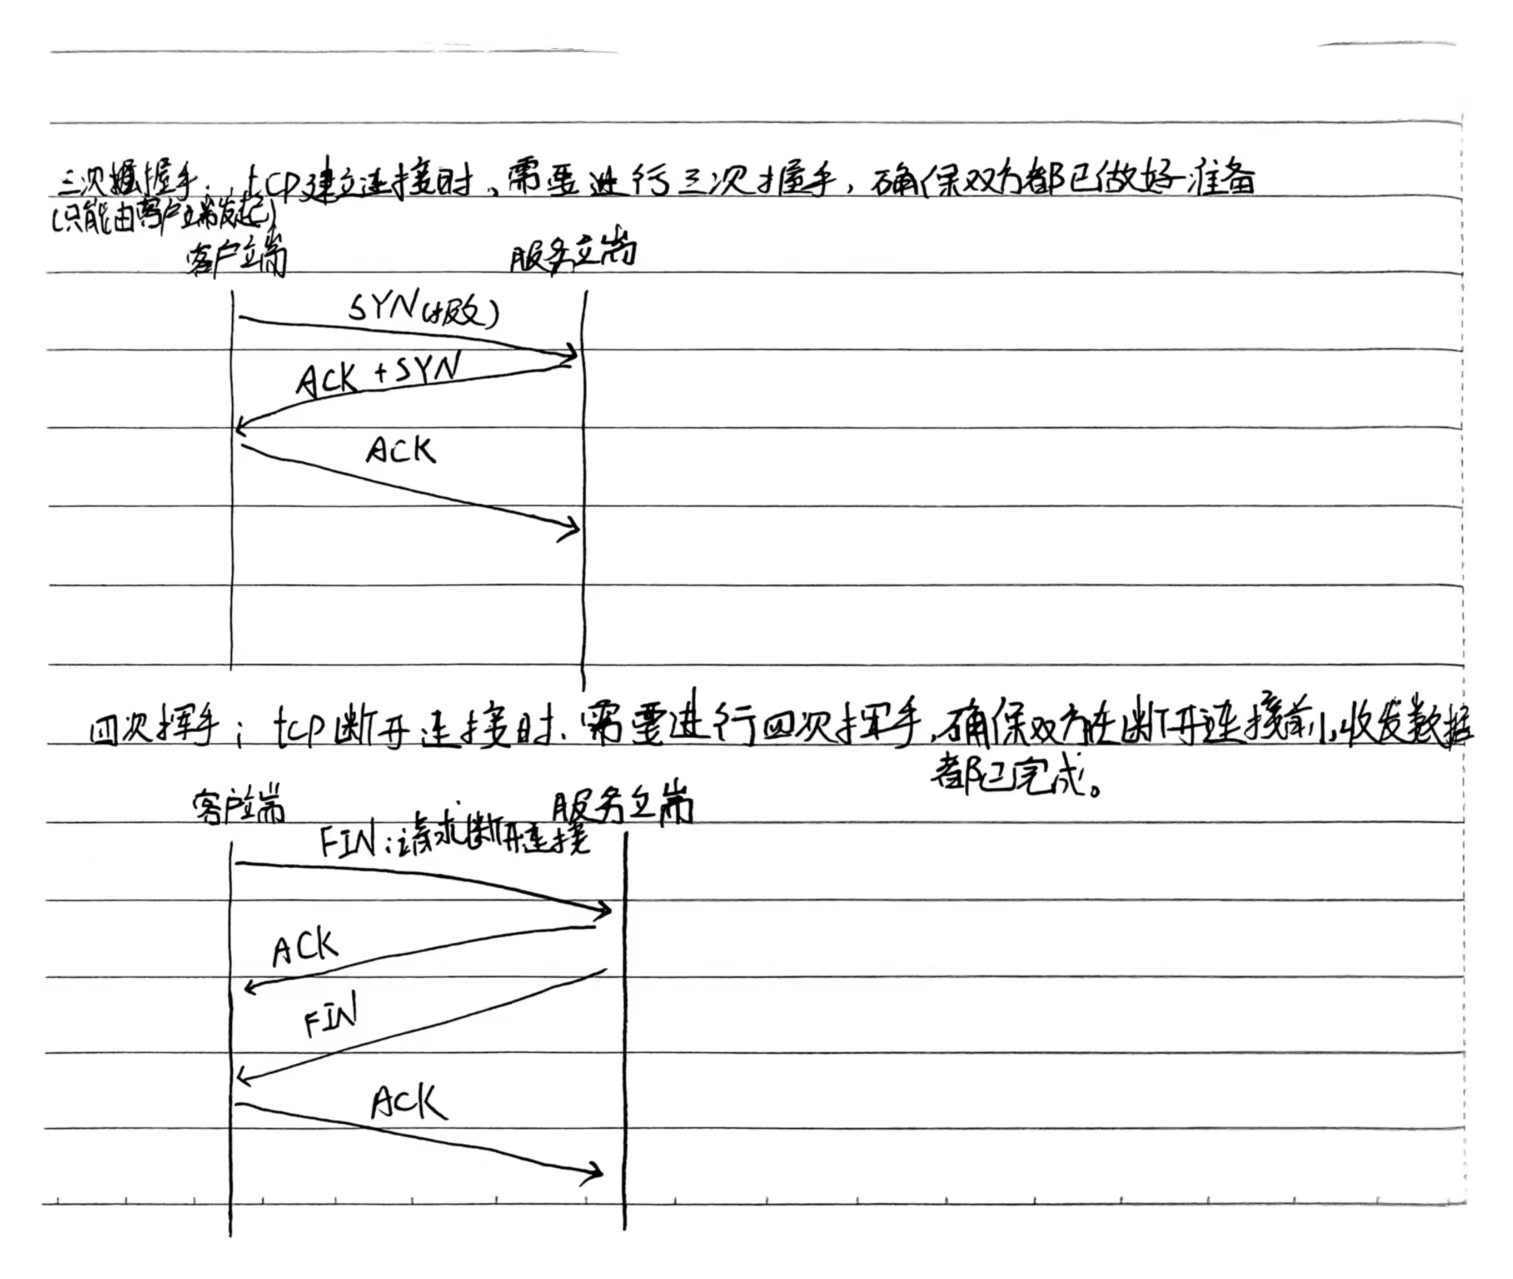 三次握手：tcp建立连接时、需要进行三次握手，确保双方都已做好准备
(只能由客户端发起)
客户端 服务端
SYN(报文)
ACK + SYN
ACK
四次挥手：tcp断开连接时、需要进行四次挥手，确保双方在断开连接前，收发数据
都已完成。
客户端 服务端
FIN：请求断开连接
ACK
FIN
ACK